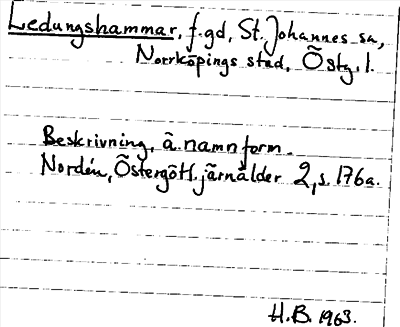 Ledungshammar, f. gd, St. Johannes sn,
Norrköpings stad, Östg. l.
Beskrivning, ä. namnform.
Nordén, Östergötl. järnålder 2, s. 176a.
H.B. 1963.